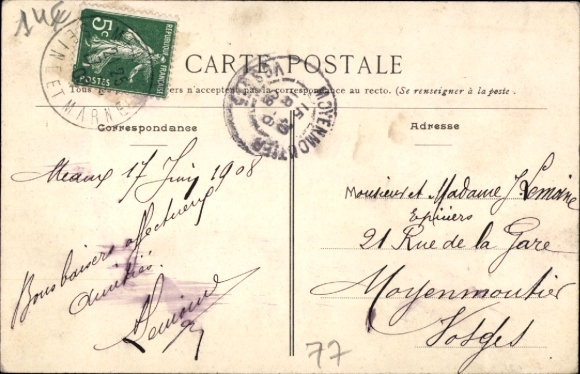 14€
5c
REPUBLIQUE FRANÇAISE
POSTES
SEINE ET MARNE
CARTE POSTALE
MOYENMOUTIER
VOSGES
Tous les pays étrangers n'acceptent pas la correspondance au recto. (Se renseigner à la poste.
Correspondance
Adresse
Meaux 17 Juin 1908
Bons baisers affectueux
amitiés.
Lemoine
Monsieur et Madame J. Lemoine
Epiciers
21 Rue de la Gare
Moyenmoutier
Vosges
77